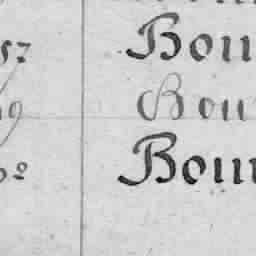 57 Bou
9 Bou
2 Bour